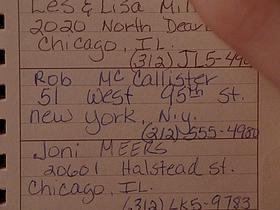 Les & Lisa Mil
2020 North Dear
Chicago, IL.
(312) JL5-49
Rob McCallister
51 West 95th St.
new york, N.y.
(212) 555-4980
Joni MEERS
20601 Halstead st.
Chicago, IL.
(312) LK5-9783